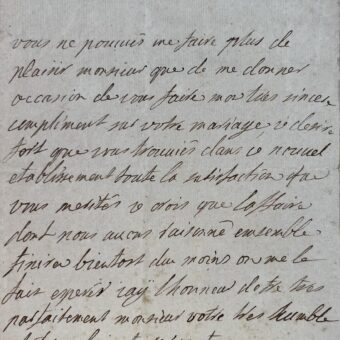 vous ne pouviés me faire plus de
plaisir monsieur que de me donner
occasion de vous faire mon tres sincere
compliment sur votre mariage, je desire
fort que vous trouviés dans ce nouvel
etablissement toute la satisfaction que
vous merités je crois que laffaire
dont nous avons raisonné ensemble
finira bientost du moins on me le
fait esperer jay lhonneur detre tres
parfaitement monsieur votre tres humble